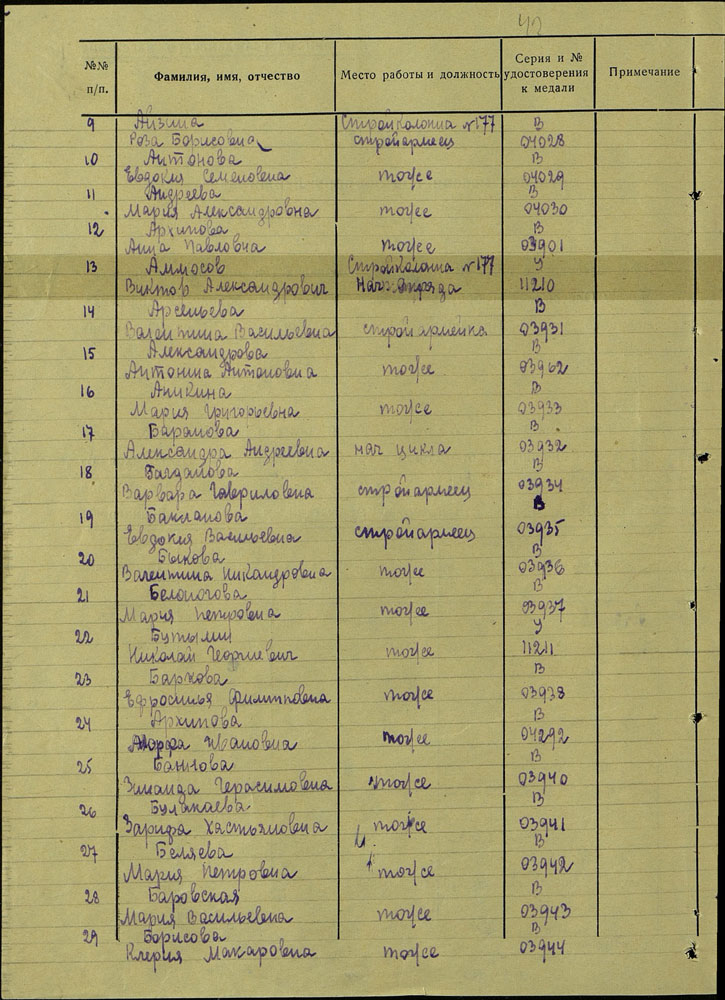 42
№№ п/п.
Фамилия, имя, отчество
Место работы и должность
Серия и № удостоверения к медали
Примечание
9 Айзина Стройколонна №177 В
Роза Борисовна стройармеец 04028
10 Антонова В
Евдокия Семеновна тоже 04029
11 Андреева В
Мария Александровна тоже 04030
12 Архипова В
Анна Павловна тоже 03901
13 Аммосов Стройколонна №177 У
Виктор Александрович Нач. отряда 11210
14 Арсеньева В
Валентина Васильевна стройармейка 03931
15 Александрова В
Антонина Антоновна тоже 03962
16 Аникина В
Мария Григорьевна тоже 03933
17 Баранова В
Александра Андреевна нач цикла 03932
18 Багданова В
Варвара Гавриловна стройармеец 03934
19 Бакланова В
Евдокия Васильевна стройармеец 03935
20 Быкова В
Валентина Никандровна тоже 03936
21 Белоногова В
Мария Петровна тоже 03937
22 Бутылин У
Николай Георгиевич тоже 11211
23 Баркова В
Ефросинья Филипповна тоже 03938
24 Архипова В
Марфа Ивановна тоже 04292
25 В
Зинаида Герасимовна тоже 03940
26 Булакаева В
Зарида тоже 03941
27 Беляева В
Мария Петровна тоже 03942
28 Баровская В
Мария Васильевна тоже 03943
29 Борисова В
Клерия Макаровна тоже 03944